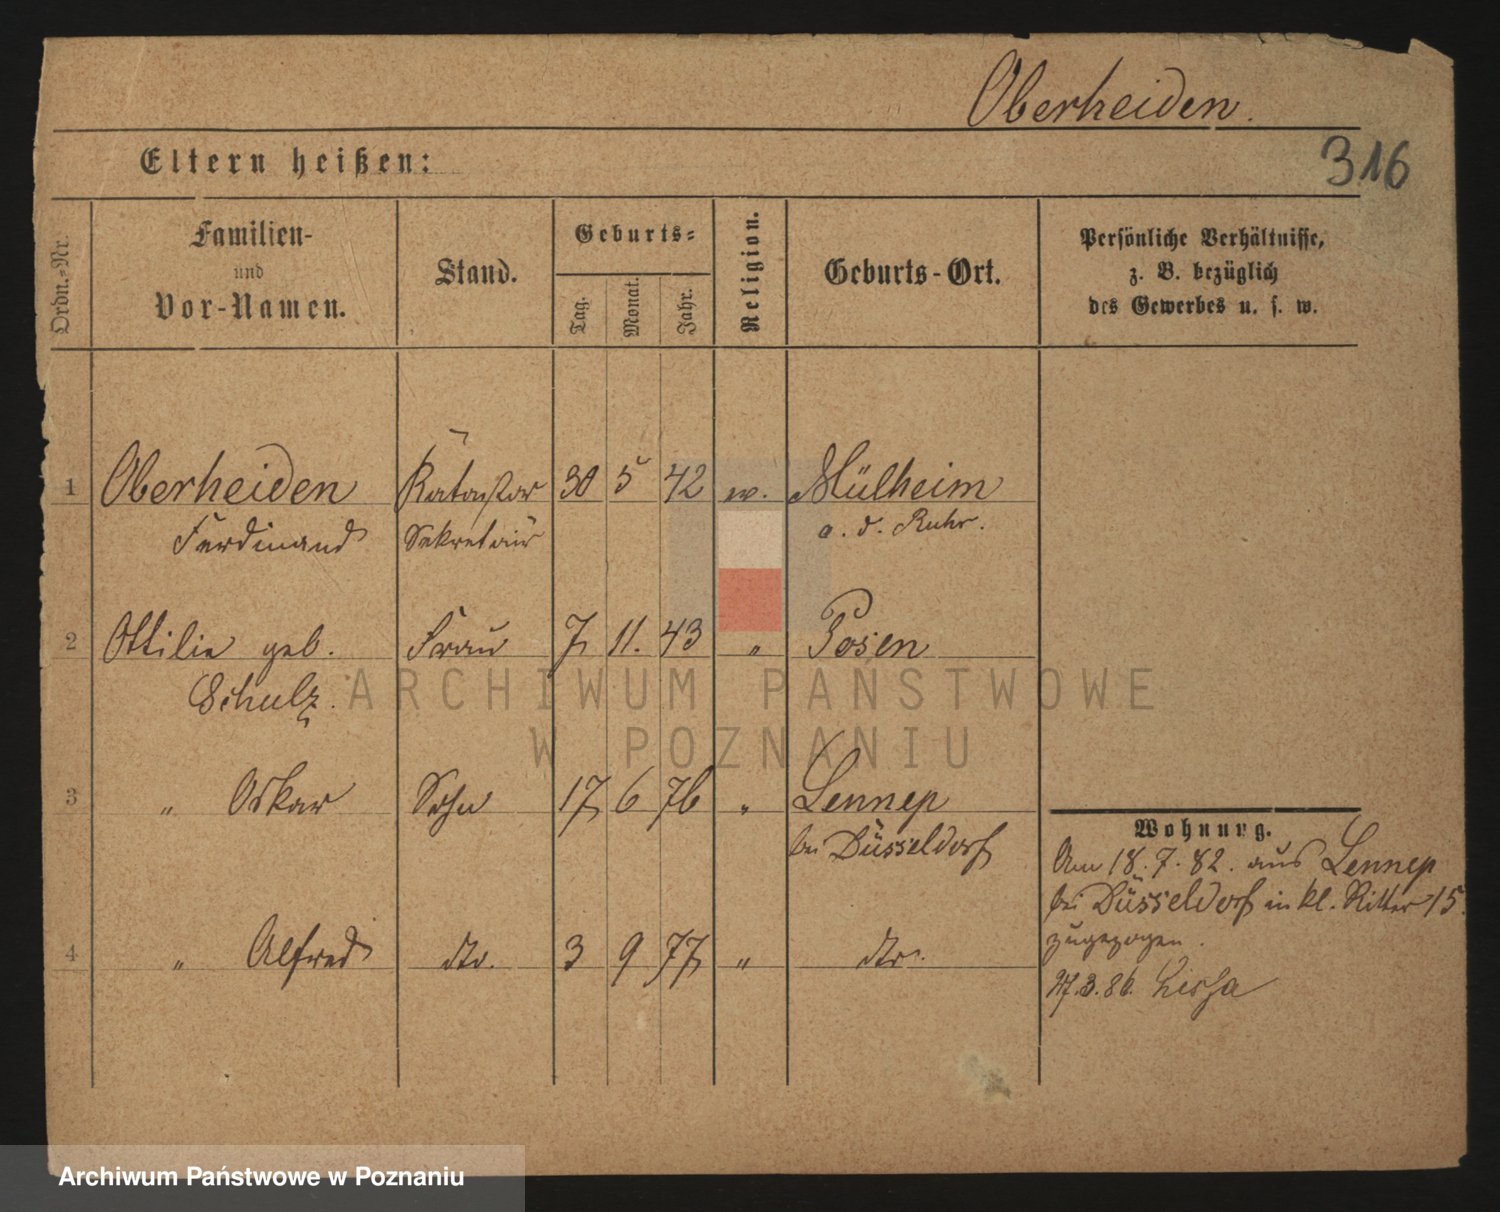 Oberheiden.
Eltern heißen:
316
Ordn.-Nr.
Familien-
und
Vor-Namen.
Stand.
Geburts-
Tag.
Monat.
Jahr.
Religion.
Geburts-Ort.
Persönliche Verhältnisse,
z. B. bezüglich
des Gewerbes u. s. w.
1 Oberheiden Kataster 30 5 42 ev. Mülheim
Ferdinand Sekretair a. d. Ruhr.
2 Ottilie geb. Frau 7 11. 43 " Posen
Schulz.
ARCHIWUM PAŃSTWOWE
W POZNANIU
3 " Oskar Sohn 17 6 76 " Lennep
bei Düsseldorf
4 " Alfred dto. 3 9 77 " dto.
Wohnung.
Am 18. 7. 82. aus Lennep
bei Düsseldorf in kl. Ritter 15.
zugezogen.
27.3.86. Lissa
Archiwum Państwowe w Poznaniu